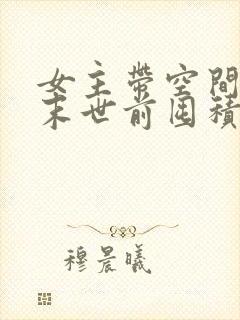 女主帶空間
末世前囤積
穆晨曦